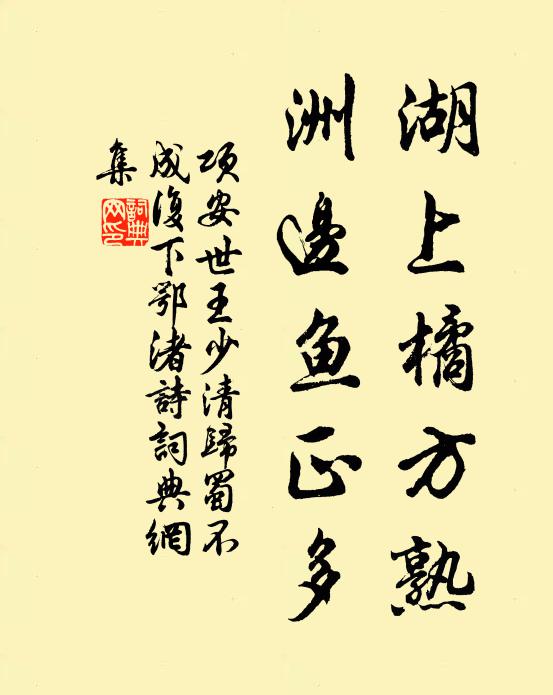 湖上橘方熟
洲邊魚正多
項安世王少清歸蜀不
成復下鄂渚詩詞典網
集
詞典網印